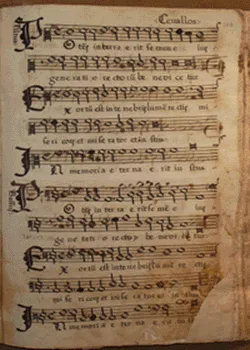 Ceuallos
P Otēs in terra e rit se men e ius
gene ra ti o re cto rū be ne di ce tur
E x ortū est in te ne bris lumē re ctis mi
se ri cors et mi se ra tor et ius tus
I n memoria e ter na e rit iustus
P Otēs in terra e rit se mē e ius
ge ne ra ti o re cto rū be ne di ce tur
E x ortū est in te ne bris lumē re ctis
mi se ri cors et mi se ra tor et ius tus
I n memoria e ter na e rit ius tus